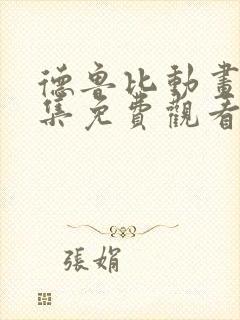 德魯比動畫
集免費觀看
張娟